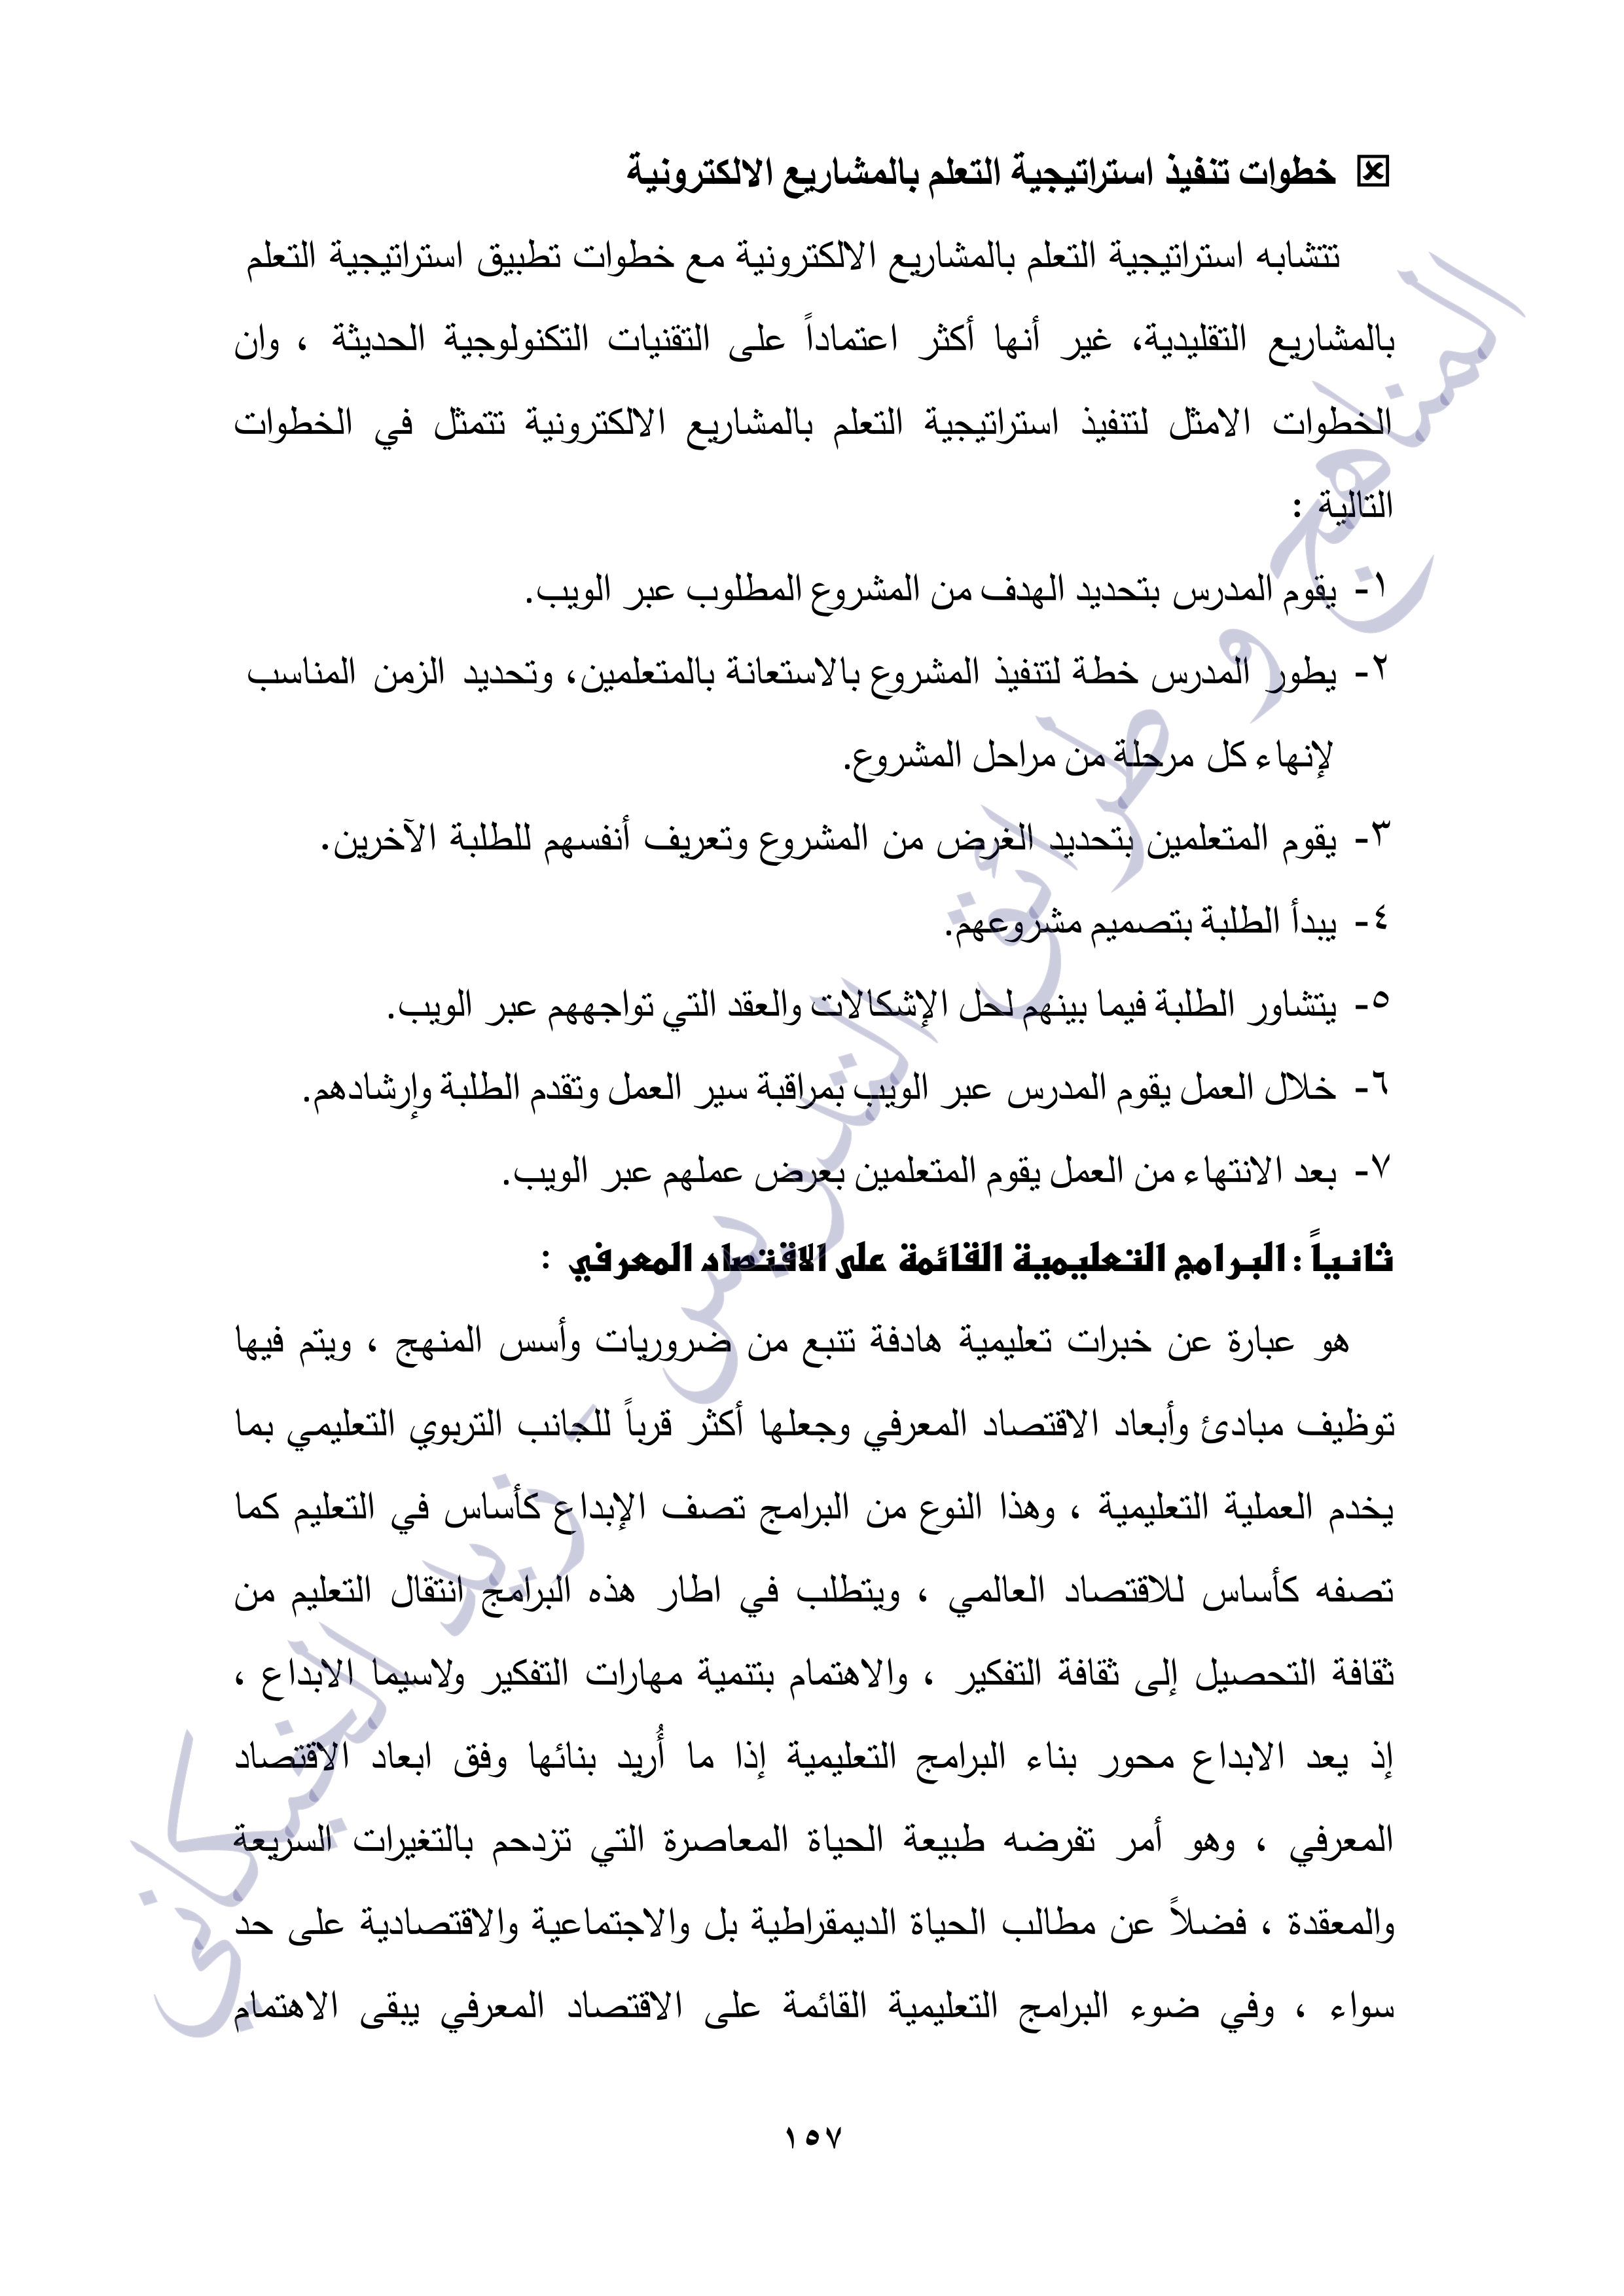 خطوات تنفيذ استراتيجية التعلم بالمشاريع الالكترونية
تتشابه استراتيجية التعلم بالمشاريع الالكترونية مع خطوات تطبيق استراتيجية التعلم
بالمشاريع التقليدية، غير أنها أكثر اعتماداً على التقنيات التكنولوجية الحديثة ، وان
الخطوات الامثل لتنفيذ استراتيجية التعلم بالمشاريع الالكترونية تتمثل في الخطوات
التالية :
١- يقوم المدرس بتحديد الهدف من المشروع المطلوب عبر الويب.
٢- يطور المدرس خطة لتنفيذ المشروع بالاستعانة بالمتعلمين، وتحديد الزمن المناسب
لإنهاء كل مرحلة من مراحل المشروع.
٣- يقوم المتعلمين بتحديد الغرض من المشروع وتعريف أنفسهم للطلبة الآخرين.
٤- يبدأ الطلبة بتصميم مشروعهم.
٥- يتشاور الطلبة فيما بينهم لحل الإشكالات والعقد التي تواجههم عبر الويب.
٦- خلال العمل يقوم المدرس عبر الويب بمراقبة سير العمل وتقدم الطلبة وإرشادهم.
٧- بعد الانتهاء من العمل يقوم المتعلمين بعرض عملهم عبر الويب.
ثانياً : البرامج التعليمية القائمة على الاقتصاد المعرفي :
هو عبارة عن خبرات تعليمية هادفة تنبع من ضروريات وأسس المنهج ، ويتم فيها
توظيف مبادئ وأبعاد الاقتصاد المعرفي وجعلها أكثر قرباً للجانب التربوي التعليمي بما
يخدم العملية التعليمية ، وهذا النوع من البرامج تصف الإبداع كأساس في التعليم كما
تصفه كأساس للاقتصاد العالمي ، ويتطلب في اطار هذه البرامج انتقال التعليم من
ثقافة التحصيل إلى ثقافة التفكير ، والاهتمام بتنمية مهارات التفكير ولاسيما الابداع ،
إذ يعد الابداع محور بناء البرامج التعليمية إذا ما أُريد بنائها وفق ابعاد الاقتصاد
المعرفي ، وهو أمر تفرضه طبيعة الحياة المعاصرة التي تزدحم بالتغيرات السريعة
والمعقدة ، فضلاً عن مطالب الحياة الديمقراطية بل والاجتماعية والاقتصادية على حد
سواء ، وفي ضوء البرامج التعليمية القائمة على الاقتصاد المعرفي يبقى الاهتمام
١٥٧
المناهج و طرائق التدريس - زيد الخيكاني